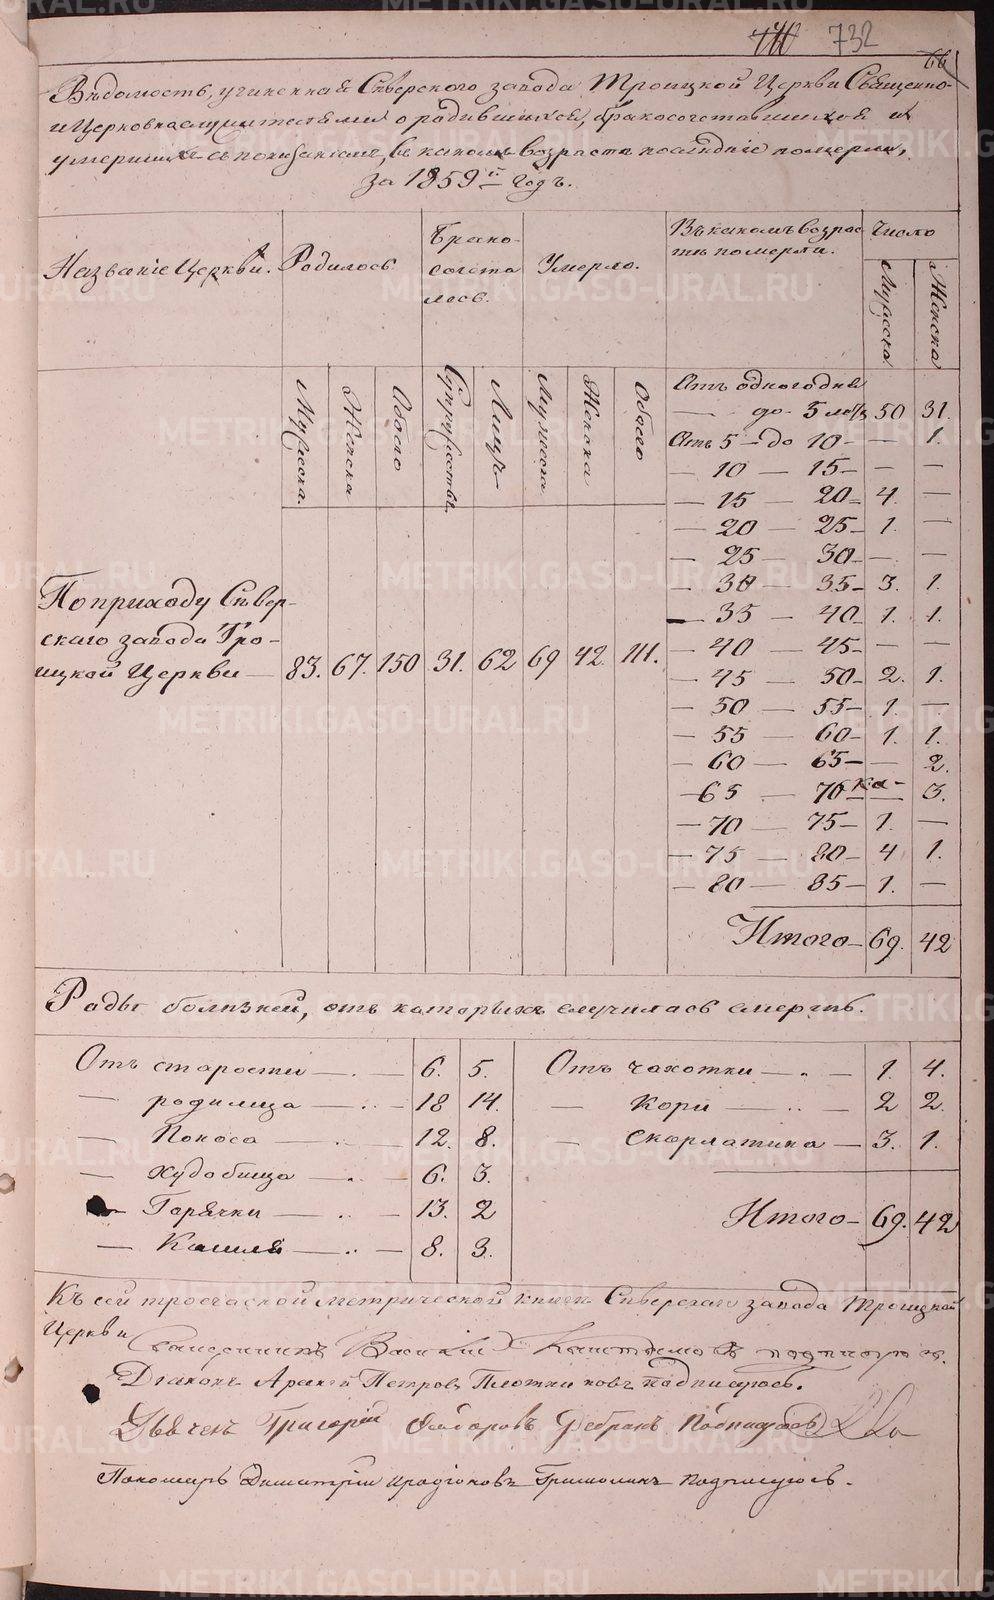 732
66
Вѣдомость, учиненная Сѣверскаго завода Троицкой Церкви Священно-
и Церковнослужителями о родившихся, бракосочетавшихся и
умершихъ съ показаніемъ, въ какомъ возрастѣ послѣдніе померли,
за 1859й Годъ.
Названіе Церкви. Родилось Брако-сочета лось. Умерло. Въ какомъ возрас тѣ померли. Число
Мужеска Женска
Мужеска. Женска Обоего Супружествъ. Лицъ Мужеска Женска Обоего
Отъ одного дня
— до 5 лѣтъ 50 31.
Отъ 5 — до 10 — — 1.
— 10 — 15 — — —
— 15 — 20 — 4. —
— 20 — 25 — 1. —
— 25 — 30 — — —
— 30 — 35 — 3. 1.
— 35 — 40 — 1. 1.
— 40 — 45 — — —
— 45 — 50 — 2. 1.
— 50 — 55 — 1. —
— 55 — 60 — 1. 1.
— 60 — 65 — — 2.
— 65 — 70 — — 3.
— 70 — 75 — 1. —
— 75 — 80 — 4 1.
— 80 — 85 — 1. —
Итого — 69. 42
По приходу Сѣвер-
скаго завода Тро-
ицкой Церкви — 83. 67. 150 31. 62 69 42. 111.
Роды болѣзней, отъ которыхъ случилась смерть.
Отъ старости — . — 6. 5. Отъ чахотки — . — 1. 4.
— родимца — .. — 18 14. — Кори — .. — 2 2.
— Поноса — .. — 12. 8. — скарлатина — 3. 1.
— худобища — . — 6. 3.
— Горячки — .. — 13. 2 Итого — 69. 42
— Кашля — .. — 8. 3.
Къ сей троечасной метрической книгѣ Сѣверскаго завода Троицкой
Церкви
Священникъ Василій подписуюсь.
Діаконъ Петровъ Плотниковъ подписуюсь.
Григорій Подписуюсь
Пономарь Димитрій Иродіоновъ подписуюсь.
METRIKI.GASO-URAL.RU